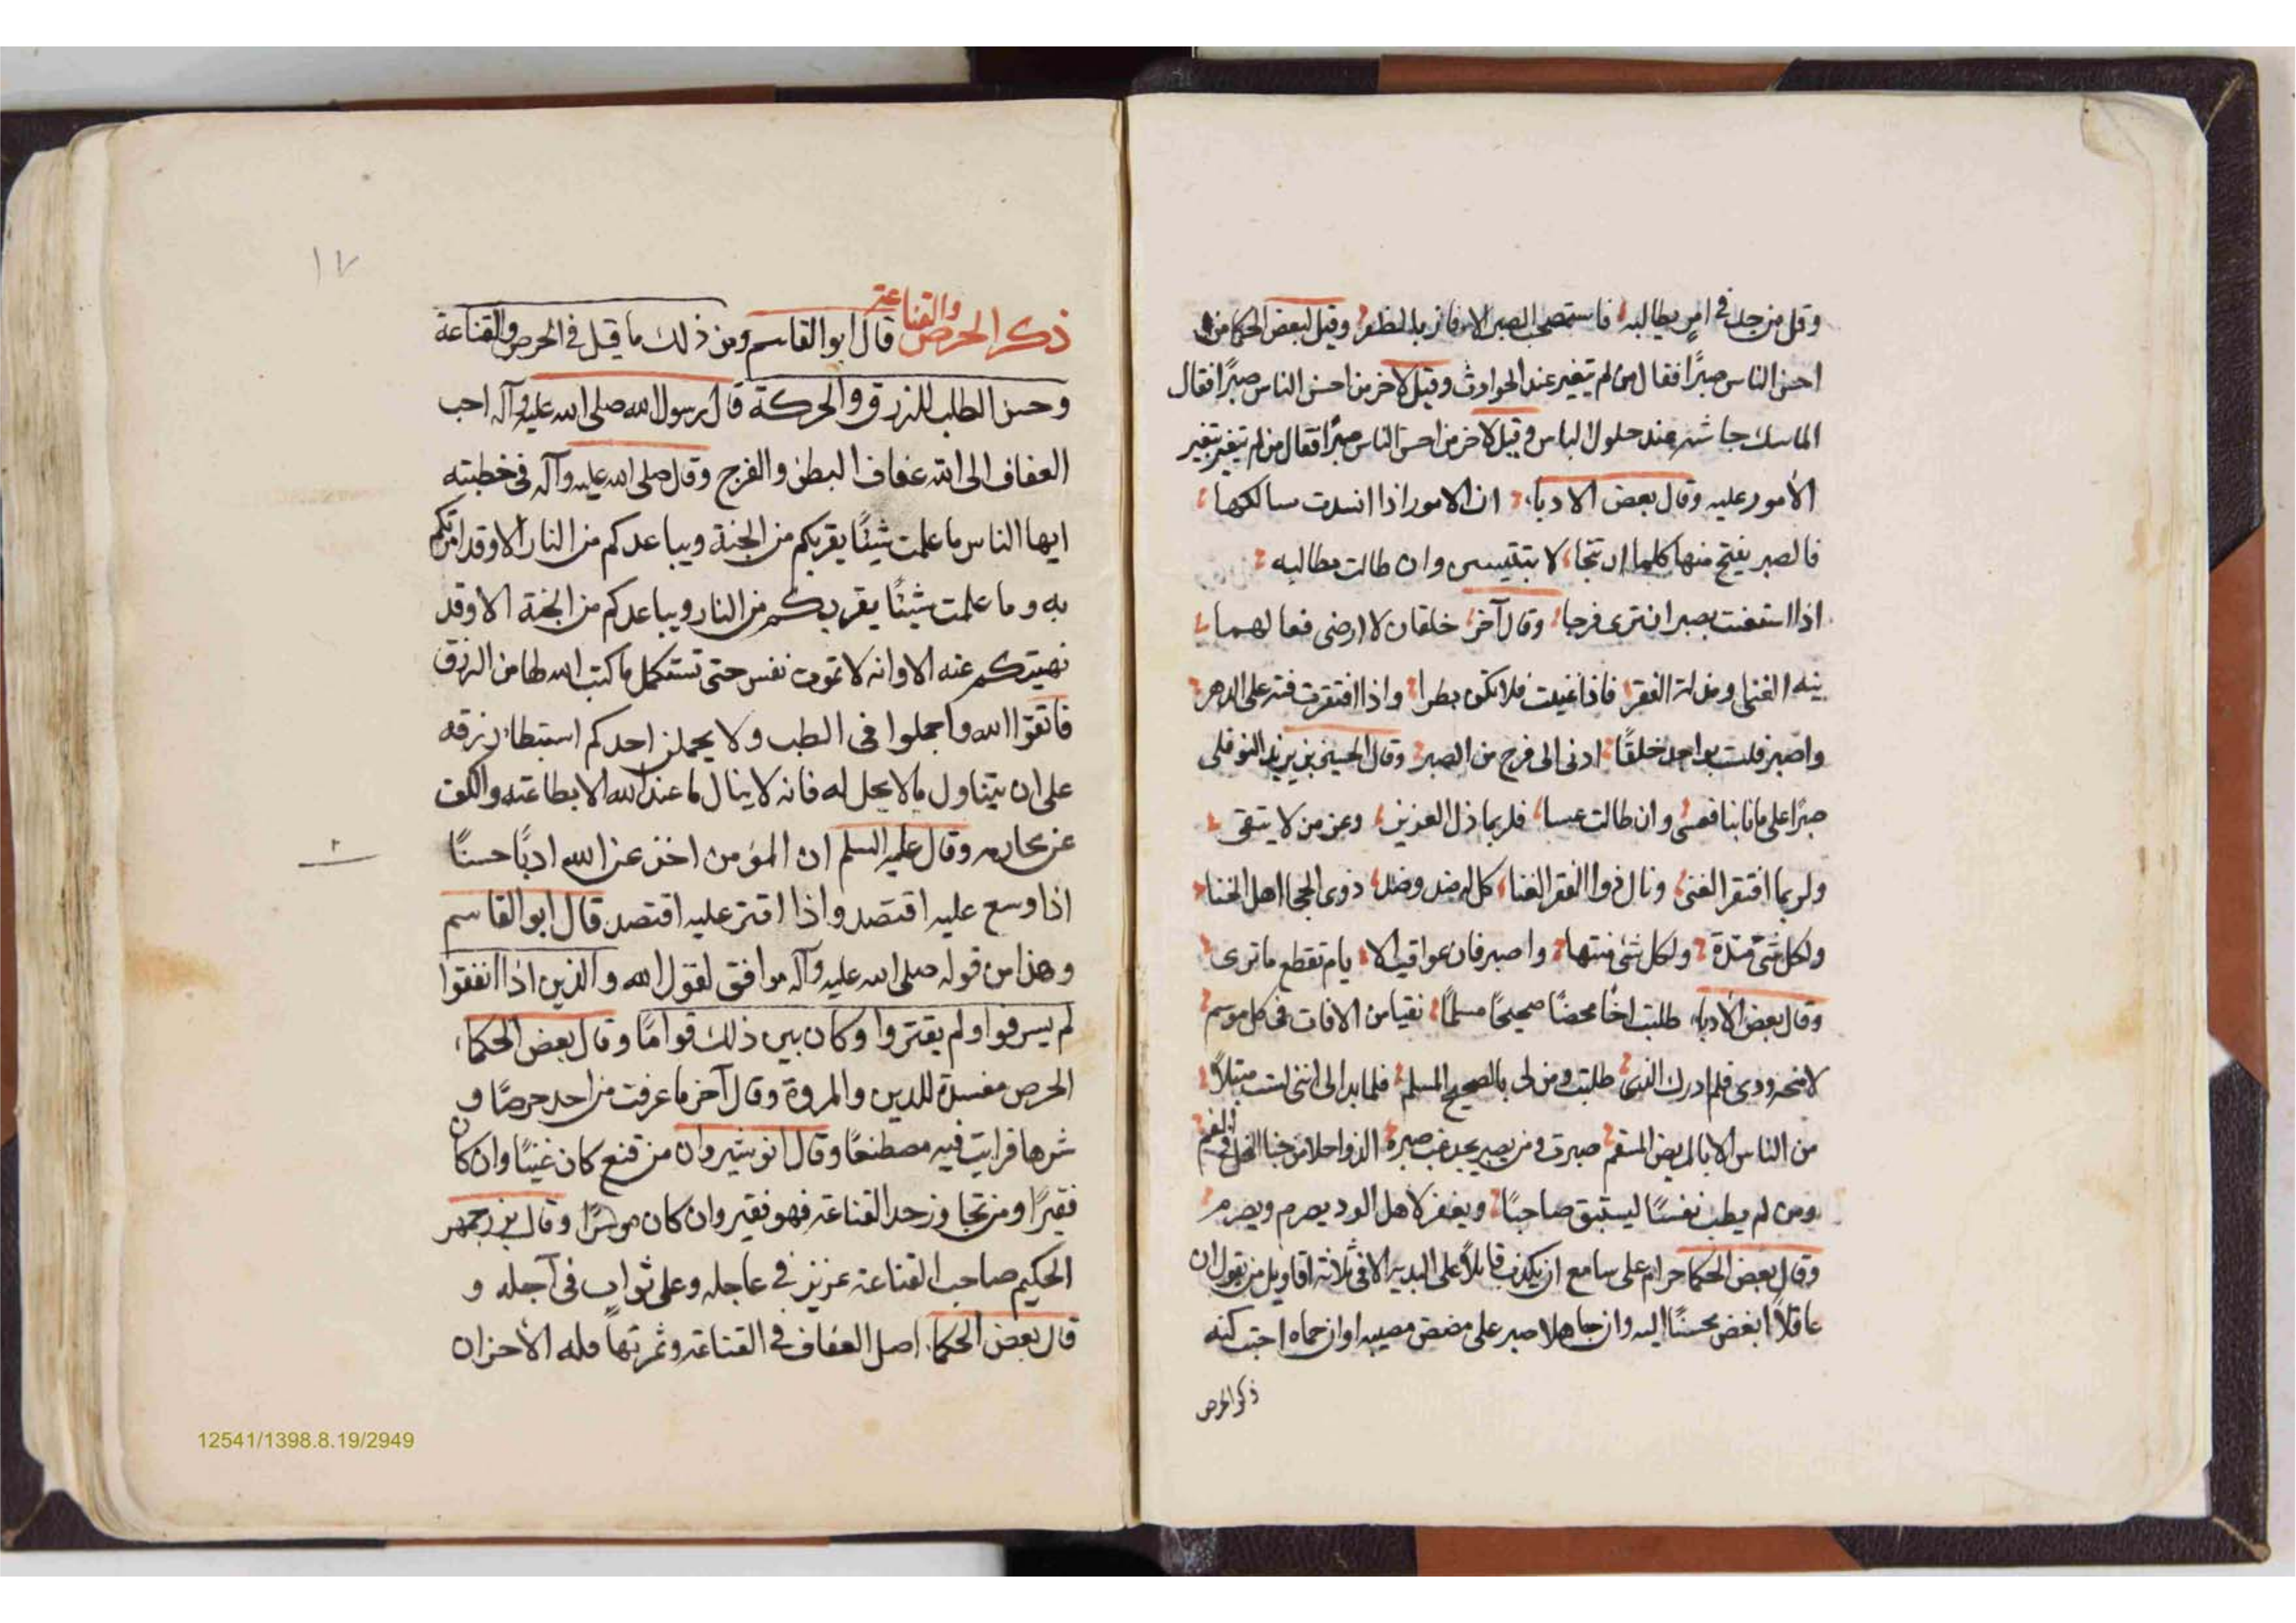 وقل من جد في امر يطالبه فاستصحب الصبر الا فاز بالظفر وقيل لبعض الحكما من
احسن الناس صبرًا فقال من لم يتغير عند الحوادث وقيل لاخر من احسن الناس صبرًا فقال
الماسك جاشه عند حلول الباس وقيل لاخر من احسن الناس صبرًا فقال من لم يتغير بتغير
الأمور عليه وقال بعض الادباء ان الامور اذا انسدت سالكها
فالصبر يفتح منها كلما ارتتجا لا تيئسن وان طالت مطالبه
اذا استعنت بصبر ان ترى فرجا وقال آخر خلقان لا ارضى فعالهما
تيه الغنى ومذلة الفقر فاذا غنيت فلا تكن بطرا واذا افتقرت فته على الدهر
واصبر فلست بواجد خلقًا ادنى الى فرج من الصبر وقال الحسين بن يزيد النوفلى
صبرًا على ما نابنا فعسى وان طالت عسا فلربما ذل العزيز وعز من لا يتقى
ولربما افتقر الغنى ونال ذوا الفقر الغنا كل له ضد وضد ذوى الحجا اهل الخنا
ولكل شئ مدة ولكل شئ منتها واصبر فان عواقب الا يام تقطع ما ترى
وقال بعض الأدباء طلبت اخًا محضًا صحيحًا مسلمًا نقيا من الافات فى كل موسم
لامنحه ودى فلم ادرك الذى طلبت ومن لى بالصحيح المسلم فلما بدا لى اننى لست مبتلاً
من الناس الا بالمريض المسقم صبرت ومن يصبر يجد غب صبره الذ واحلا من جنا النحل فى الفم
ومن لم يطب نفسًا ليستبق صاحبًا ويغفر لاهل الود يصرم ويصرم
وقال بعض الحكما حرام على سامع ان يكذب قائلاً على البديه الا فى ثلاثة اقاويل من يقول ان
عاقلاً ابغض محسنًا اليه وان جاهلا صبر على مضض مصيبه اوان حماه احبت كنه
ذكر الحرص
١٧
ذكر الحرص والقناعة قال ابو القاسم ومن ذلك ما قيل فى الحرص والقناعة
وحسن الطلب للرزق والحركة قال رسول الله صلى الله عليه وآله احب
العفاف الى الله عفاف البطن والفرج وقال صلى الله عليه وآله فى خطبته
ايها الناس ما علمت شيئًا يقربكم من الجنة ويباعدكم من النار الا وقد امرتكم
به وما علمت شيئًا يقربكم من النار ويباعدكم من الجنة الا وقد
نهيتكم عنه الا وانه لا تموت نفس حتى تستكمل ما كتب الله لها من الرزق
فاتقوا الله واجملوا فى الطلب ولا يحملن احدكم استبطاء رزقه
على ان يتناول ما لا يحل له فانه لا ينال ما عند الله الا بطاعته والكف
عن محارمه وقال عليه السلم ان المؤمن اخذ عن الله ادبًا حسنًا
اذا وسع عليه اقتصد واذا اقتر عليه اقتصد قال ابو القاسم
وهذا من قوله صلى الله عليه وآله موافق لقول الله والذين اذا انفقوا
لم يسرفوا ولم يقتروا وكان بين ذلك قوامًا وقال بعض الحكماء
الحرص مفسدة للدين والمروة وقال آخر ما عرفت من احد حرصًا و
شرها فرايت فيه مصطنعًا وقال انوشيروان من قنع كان غنيًا وان كان
فقيرًا ومن تجاوز حد القناعة فهو فقير وان كان موسرًا وقال بزرجمهر
الحكيم صاحب القناعة عزيز فى عاجله وعلى ثواب فى آجله و
قال بعض الحكما اصل العفاف فى القناعة وثمرتها قله الأحزان
12541/1398.8.19/2949